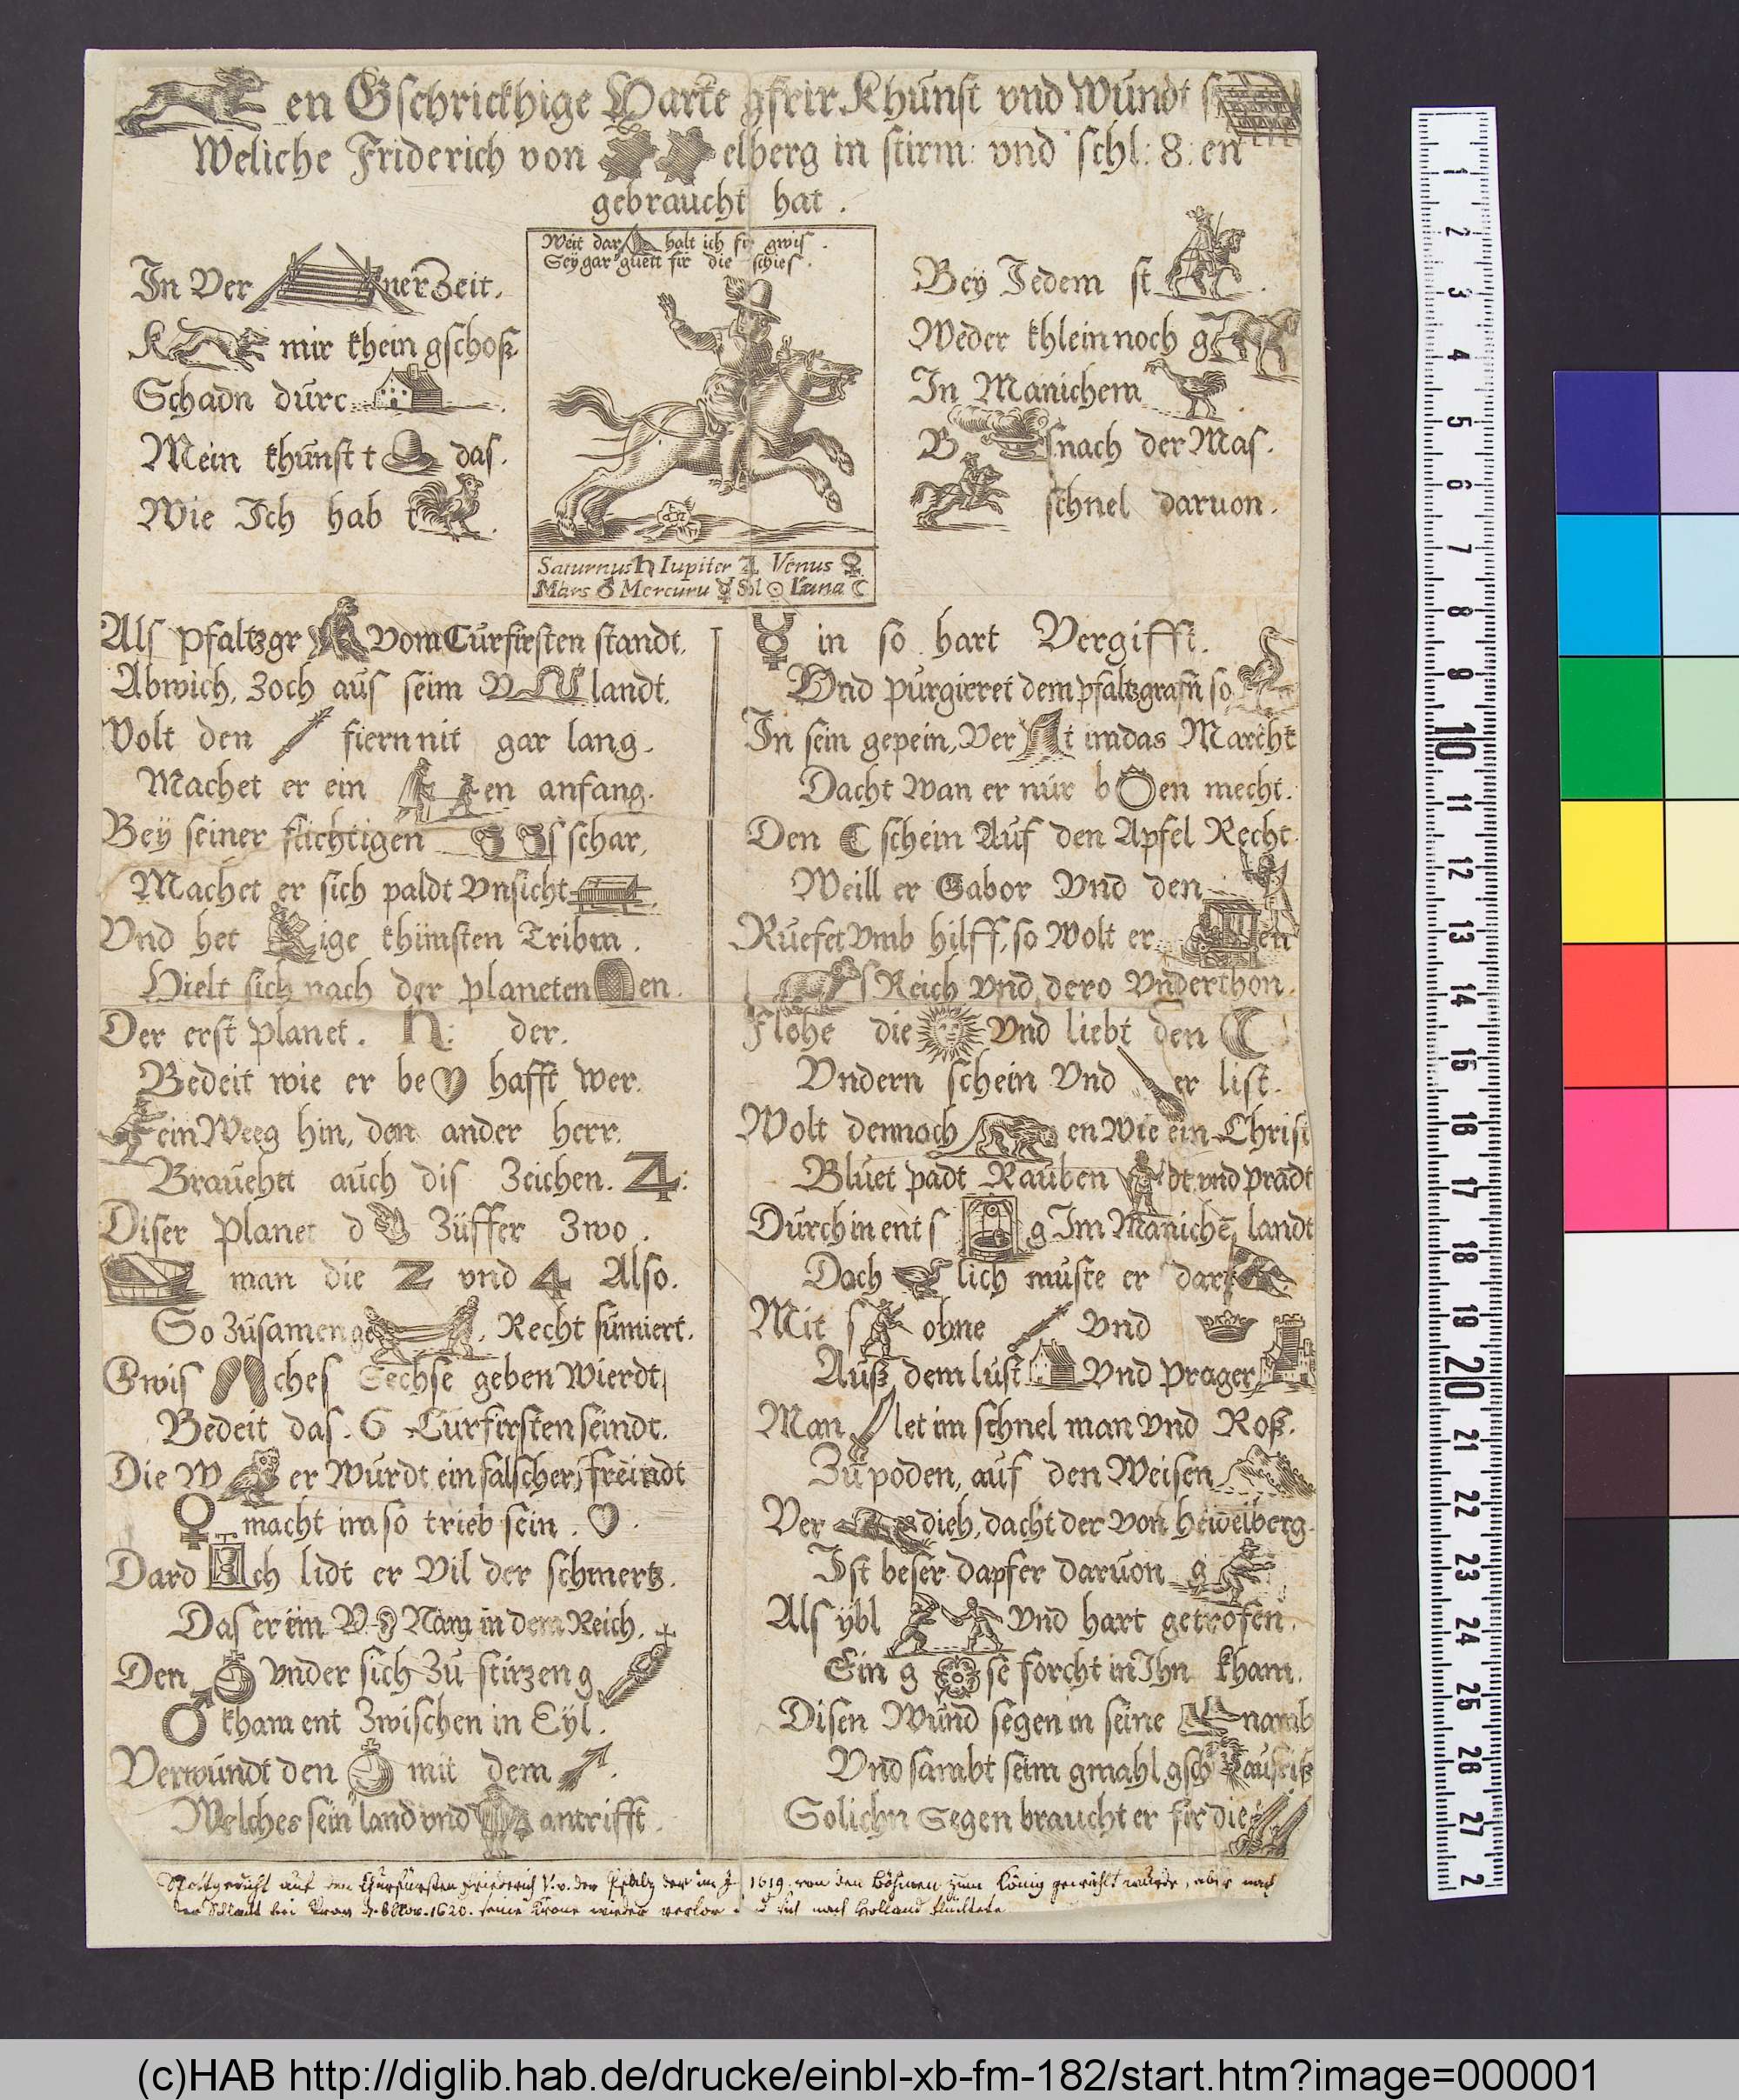 en Gschrickhige Harte gfrir Khunst vnd Wundt s
Weliche Friderich von elberg in stirm: vnd schl: 8: en
gebraucht hat.
Weit dar halt ich fir gwis.
Sey gar guett fir die schies.
In Ver ner Zeit.
K mir khein gschoß
Schadn durc
Mein khunst t das.
Wie Ich hab t
Bey Jedem st
Weder khlein noch g
In Manichem
B s nach der Mas.
schnel daruon.
Saturnus ♄ Iupiter ♃ Venus ♀
Mars ♂ Mercuru ☿ Sol ☉ Luna ☾
Als pfaltzgr Vom Curfirsten standt.
Abwich, Zoch aus seim V landt.
Wolt den fiern nit gar lang.
Machet er ein en anfang.
Bey seiner flichtigen s schar,
Machet er sich paldt Vnsicht
Vnd het ige khinsten Tribm.
Hielt sich nach der planeten en.
Der erst planet. ♄: der.
Bedeit wie er be hafft wer.
ein Weeg hin, den ander herr.
Brauchet auch dis Zeichen. ♃:
Diser planet d Züffer Zwo.
man die 2 vnd 4 Also.
So Zusamen ge Recht sumiert.
Gwis ches Sechse geben Wierdt,
Bedeit das. 6 Curfirsten seindt.
Die W er Wurdt ein falscher freindt
♀ macht im so trieb sein.
Dard ch lidt er Vil der schmertz.
Das er im Nam in dem Reich.
Den vnder sich Zu stirzen g
♂ kham ent Zwischen in Eyl.
Verwundt den mit dem
Welches sein land vnd antrifft.
☿ in so hart Vergifft.
Vnd purgirret dem pfaltzgrafn so
In sein gepein, Ver t im das Marcht
Dacht Wan er nur b en mecht.
Den ☾ schein Auf den Apfel Recht
Weill er Gabor Vnd den
Ruefet Vmb hilff, so Wolt er en
s Reich Vnd dero Vnderthon.
Flohe die Vnd liebt den
Vndern schein Vnd er list.
Wolt dennoch en Wie ein Christ
Bluet padt Rauben dt vnd pradt
Durch in ent s g Im Maniche landt
Doch lich muste er dar
Mit s ohne Vnd
Auß dem lust Vnd prager
Man let im schnel man vnd Roß.
Zu poden, auf den Weisen
Ver dieh, dacht der von heidelberg.
Ist beser dapfer daruon g
Als ybl Vnd hart getrofen.
Ein g se forcht in Ihn kham.
Disen Wund segen in seine namb
Vnd sambt seim gmahl gsch ausriß
Solichn segen braucht er fir die
Spottgedicht auf den Churfürsten Friederich V. v. der Pfalz der im J. 1619. von den Böhmen zum König gewählt wurde, aber nach
der Schlacht bei Prag d. 8 Nov. 1620. seine Krone wieder verlor u sich nach Holland flüchtete
(c)HAB http://diglib.hab.de/drucke/einbl-xb-fm-182/start.htm?image=000001
1
2
3
4
5
6
7
8
9
10
11
12
13
14
15
16
17
18
19
20
21
22
23
24
25
26
27
2